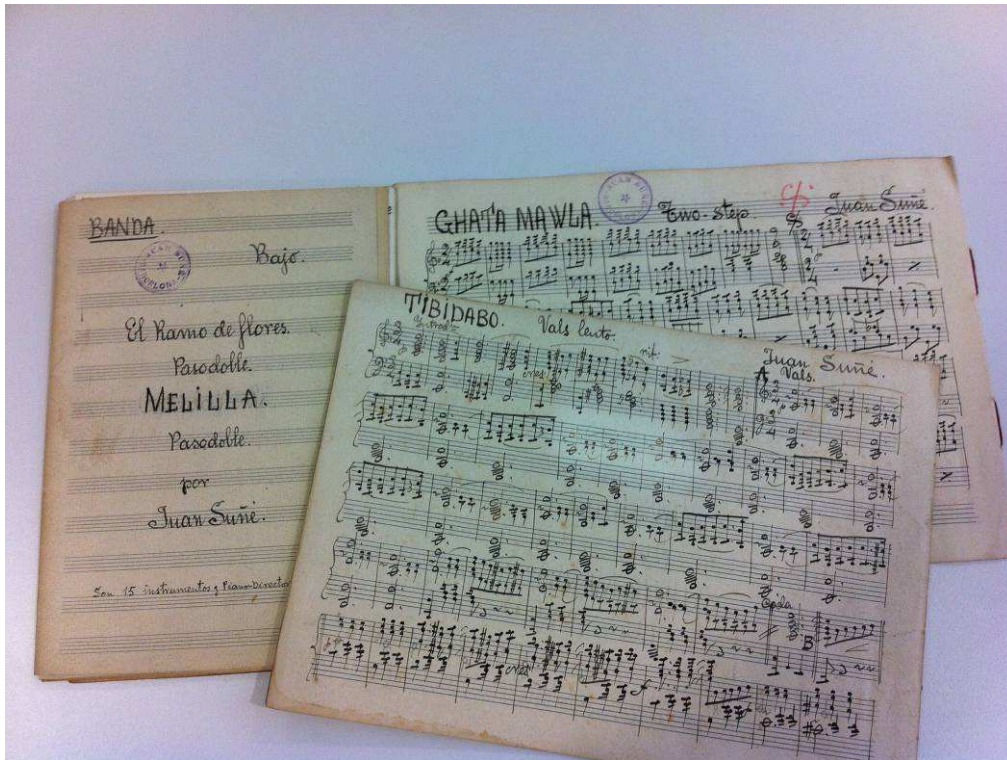 BANDA.
Bajo.
El Ramo de flores.
Pasodoble.
MELILLA.
Pasodoble.
por
Juan Suñé.
Son 15 instrumentos y Piano-Director
GHATA MAWLA. Two-step. Juan Suñé.
JUAN SUÑÉ
TIBIDABO. Vals lento. Juan Suñé.
rit. A Vals.
cres
Coda
B
cres
f